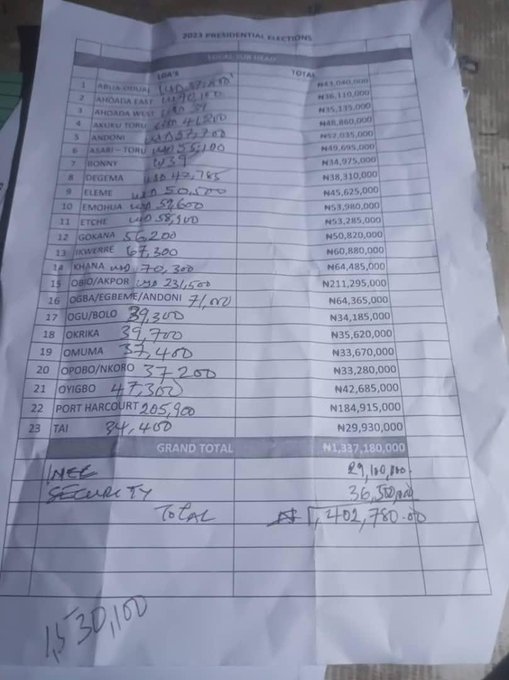 2023 PRESIDENTIAL ELECTIONS
LGA'S TOTAL
1 ABUA-ODUAL USD ₦43,040,000
2 AHOADA EAST USD 40,100 ₦36,110,000
3 AHOADA WEST ₦35,135,000
4 AKUKU TORU ₦48,860,000
5 ANDONI USD 57,700 ₦52,035,000
6 ASARI-TORU USD 55,100 ₦49,695,000
7 BONNY ₦34,975,000
8 DEGEMA USD 42,785 ₦38,310,000
9 ELEME USD 50,500 ₦45,625,000
10 EMOHUA USD 59,600 ₦53,980,000
11 ETCHE USD 58,900 ₦53,285,000
12 GOKANA 56,200 ₦50,820,000
13 IKWERRE 67,300 ₦60,880,000
14 KHANA USD 70,300 ₦64,485,000
15 OBIO/AKPOR USD 231,500 ₦211,295,000
16 OGBA/EGBEME/ANDONI 71,000 ₦64,365,000
17 OGU/BOLO 39,300 ₦34,185,000
18 OKRIKA 39,700 ₦35,620,000
19 OMUMA 37,400 ₦33,670,000
20 OPOBO/NKORO 37200 ₦33,280,000
21 OYIGBO 47,300 ₦42,685,000
22 PORT HARCOURT 205,900 ₦184,915,000
23 TAI 34,400 ₦29,930,000
GRAND TOTAL ₦1,337,180,000
INEC 29,100,000.
SECURITY 36,500,000
TOTAL ₦1,402,780.00
1,530,100